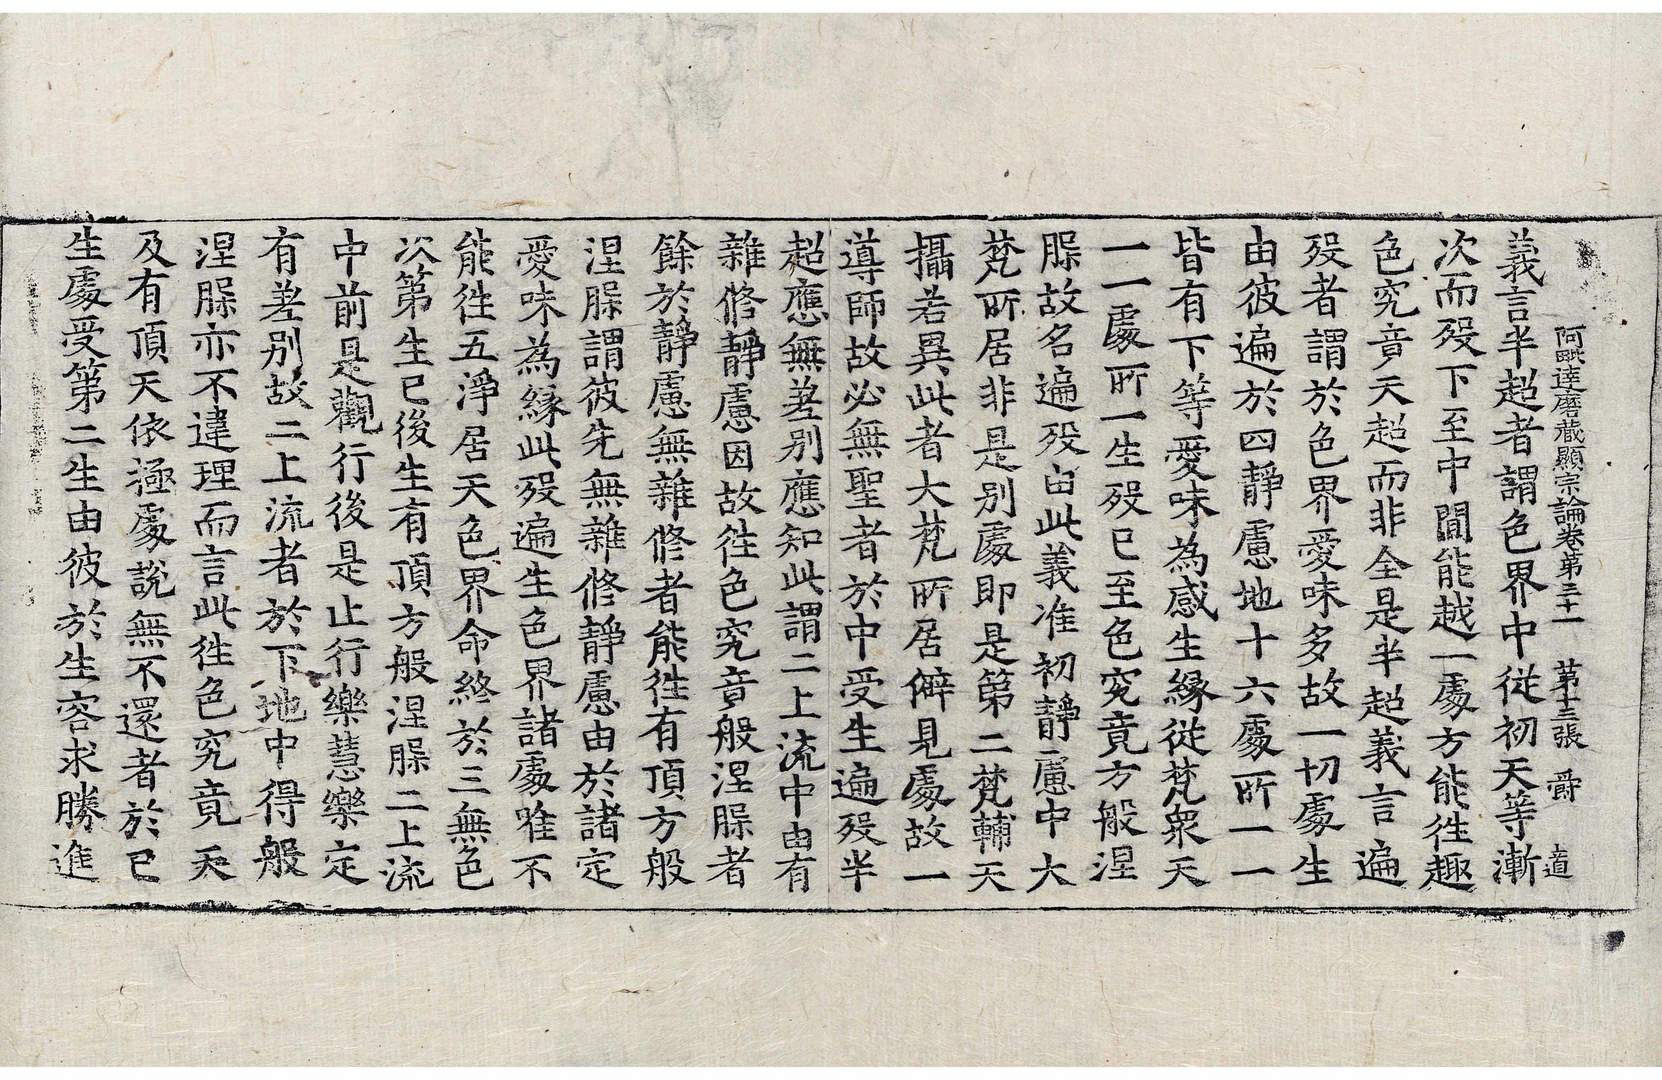 阿毗達磨藏顯宗論卷第三十一　第十三張　爵　道
義言半超者謂色界中從初天等漸
次而殁下至中間能越一處方能徃趣
色究竟天超而非全是半超義言遍
殁者謂於色界愛味多故一切處生
由彼遍於四靜慮地十六處所一一
皆有下等愛味為感生緣從梵衆天
一一處所一生殁已至色究竟方般涅
槃故名遍殁由此義准初靜慮中大
梵所居非是别處即是第二梵輔天
攝若異此者大梵所居僻見處故一
導師故必無聖者於中受生遍殁半
超應無差别應知此謂二上流中由有
雜修靜慮因故徃色究竟般涅槃者
餘於靜慮無雜修者能徃有頂方般
涅槃謂彼先無雜修靜慮由於諸定
愛味為緣此殁遍生色界諸處唯不
能徃五淨居天色界命終於三無色
次第生已後生有頂方般涅槃二上流
中前是觀行後是止行樂慧樂定
有差别故二上流者於下地中得般
涅槃亦不違理而言此徃色究竟天
及有頂天依極處說無不還者於已
生處受第二生由彼於生容求勝進